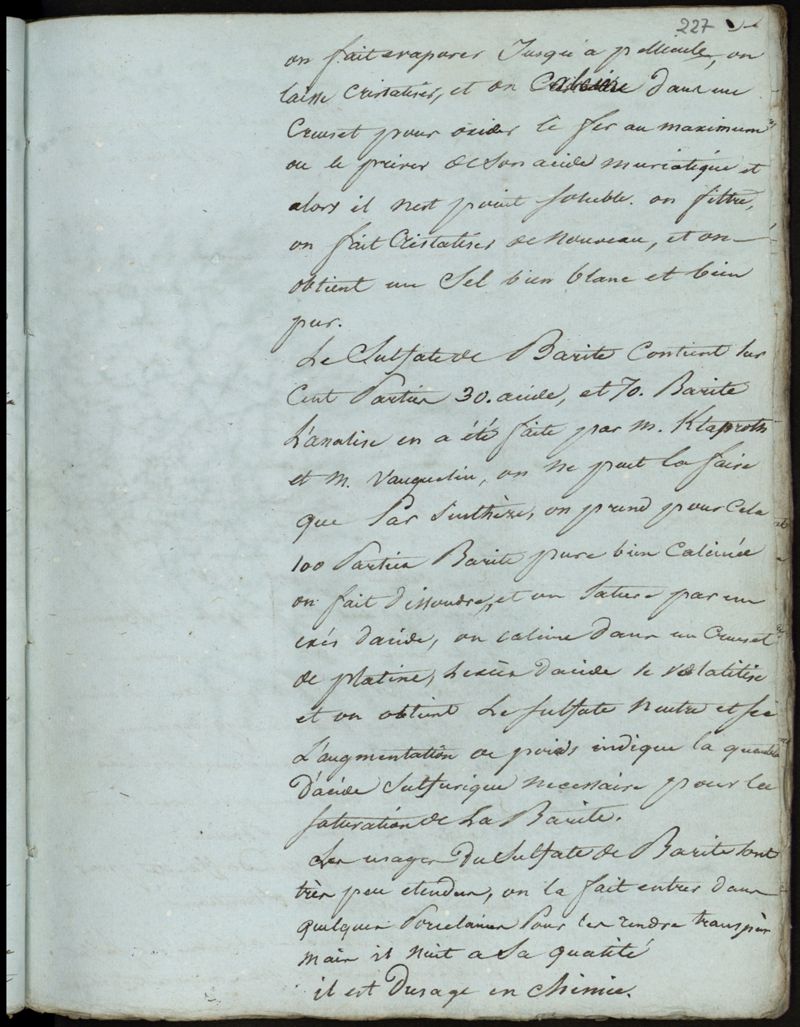 227
on fait evaporer Jusqu'a pellicule, on
laisse Cristaliser, et on Calcine dans un
Creuset pour oxider le fer au maximum
ou le priver de Son acide muriatique et
alors il n'est point soluble. on filtre,
on fait Cristaliser de nouveau, et on
obtient un Sel bien blanc et bien
pur.
Le Sulfate de Barite Contient sur
Cent Parties 30. acide, et 70. Barite
L'analise en a été faite par m. Klaproth
et m. Vauquelin, on ne peut la faire
que Par Sinthèse, on prend pour Cela
100 Parties Barite pure bien Calcinée
on fait dissoudre, et on Sature par un
exés dacide, on calcine dans un Creuset
de platine, Lexcès dacide se volatilise
et on obtient Le Sulfate neutre et sec
L'augmentation de poids indique la quantité
D'acide Sulfurique necessaire pour la
saturation de La Barite.
Les usages Du Sulfate de Barite sont
très peu etendus, on la fait entrer dans
quelques Porcelaines Pour les rendre
mais il nuit a Sa qualité
il est Dusage en chimie.